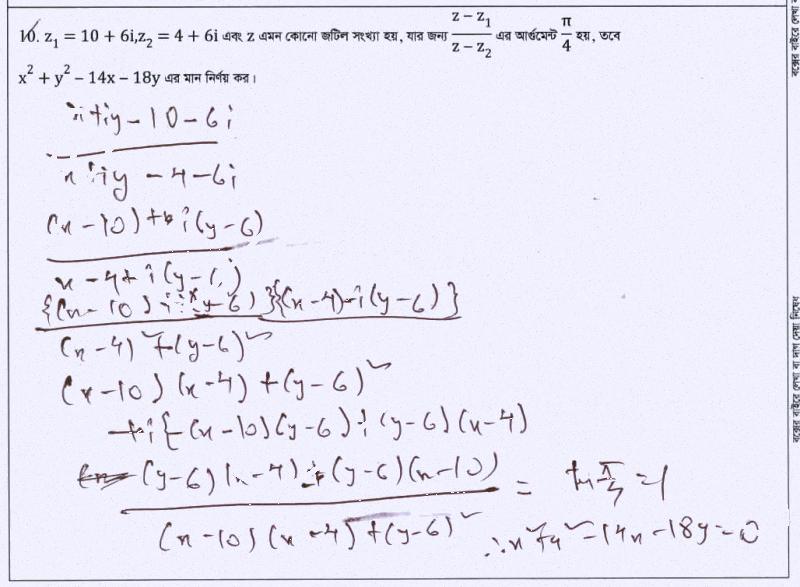 10. z₁ = 10 + 6i, z₂ = 4 + 6i এবং z এমন কোনো জটিল সংখ্যা হয়, যার জন্য (z − z₁)/(z − z₂) এর আর্গুমেন্ট π/4 হয়, তবে
x² + y² − 14x − 18y এর মান নির্ণয় কর।
x+iy−10−6i
x+iy −4−6i
(x−10)+i(y−6)
x−4+i(y−6)
{(x−10)+i(y−6)}{(x−4)−i(y−6)}
(x−4)²+(y−6)²
(x−10)(x−4)+(y−6)²
+i{−(x−10)(y−6)+(y−6)(x−4)
(y−6)(x−4)−(y−6)(x−10)
= tan π/4 = 1
(x−10)(x−4)+(y−6)²
∴x²+y²−14x−18y=0
বক্সের বাইরে লেখা বা দাগ দেয়া নিষেধ